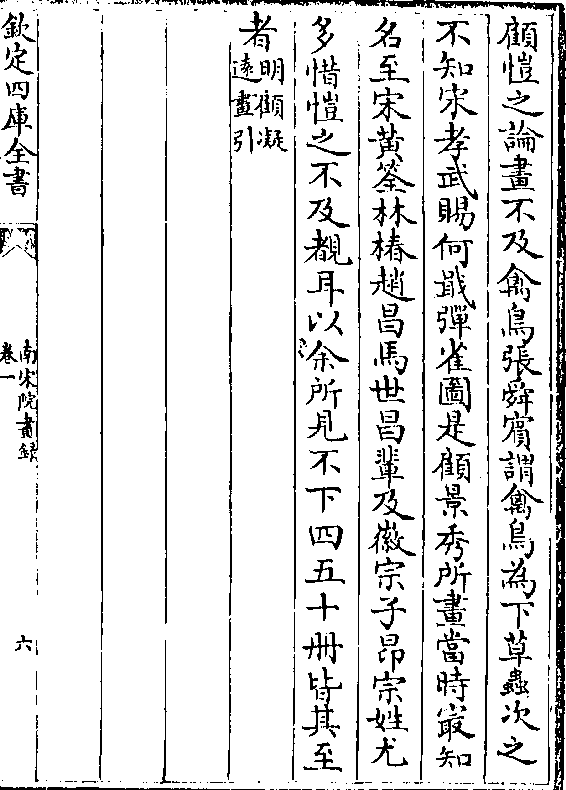 顧愷之論畫不及禽鳥張舜賓謂禽鳥為下草蟲次之
不知宋孝武賜何戢彈雀圖是顧景秀所畫當時㝡知
名至宋黃筌林椿趙昌馬世昌輩及徽宗子昂宗姓尤
多惜愷之不及覩耳以余所見不下四五十冊皆其至
者明顧凝
遠畫引
欽定四庫全書
南宋院畫錄
卷一
六